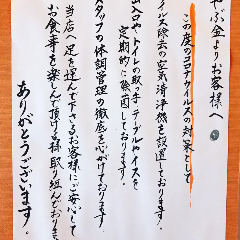 やぶ金よりお客様へ
この度のコロナウイルスの対策として
イルス除去の空気清浄機を設置しております。
出入口やトイレの取っ手、テーブルやイスを
定期的に除菌しております。
スタッフの体調管理の徹底を心がけております
当店へ足を運んで下さるお客様にご安心して
お食事を楽しんで頂ける様取り組んでおりま
ありがとうございます。